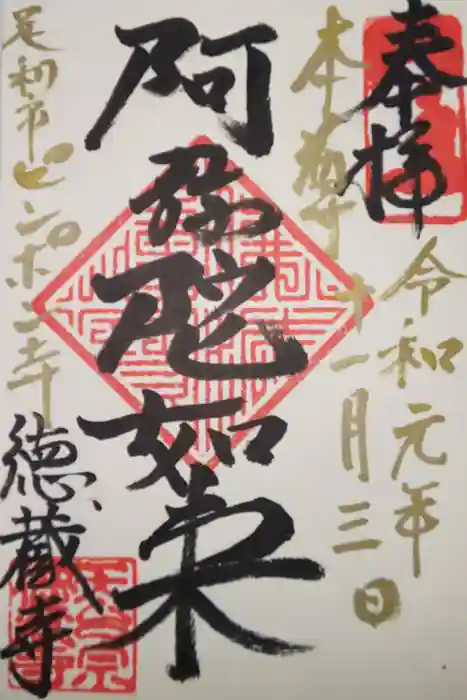 奉拝
令和元年
本尊
十一月三日
阿弥陀如来
足利市ピンポン寺
徳蔵寺